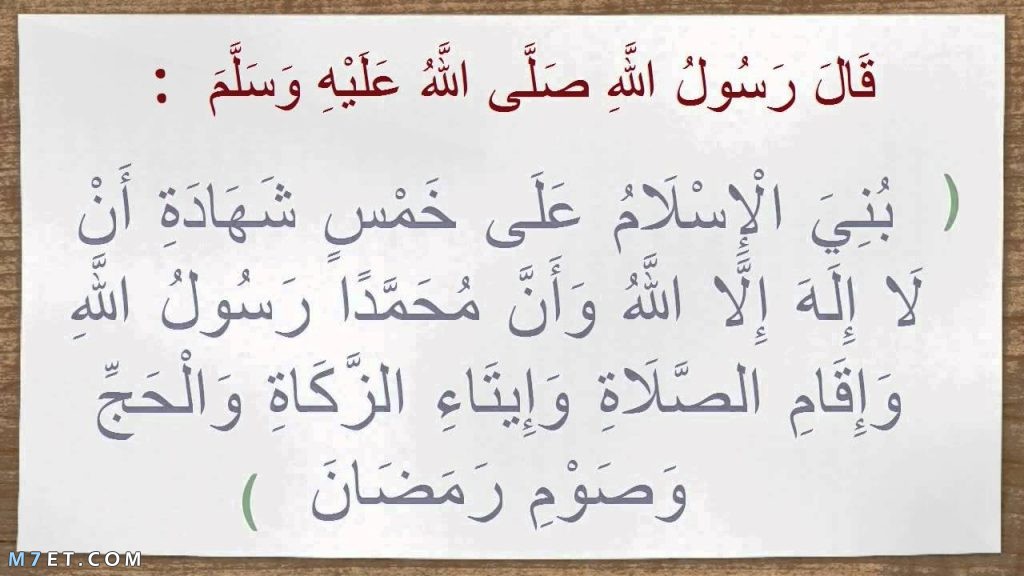 قَالَ رَسُولُ اللَّهِ صَلَّى اللَّهُ عَلَيْهِ وَسَلَّمَ :
( بُنِيَ الْإِسْلَامُ عَلَى خَمْسٍ شَهَادَةِ أَنْ
لَا إِلَهَ إِلَّا اللَّهُ وَأَنَّ مُحَمَّدًا رَسُولُ اللَّهِ
وَإِقَامِ الصَّلَاةِ وَإِيتَاءِ الزَّكَاةِ وَالْحَجِّ
وَصَوْمِ رَمَضَانَ )
M7ET.COM